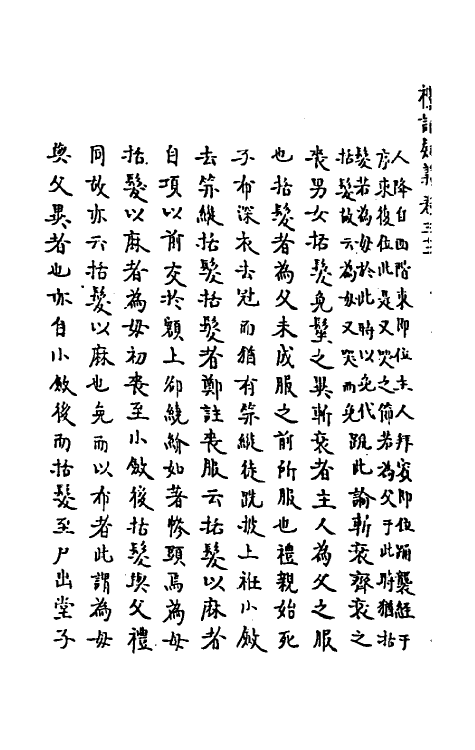 禮記疑義卷三十三
人降自西階東即位主人拜賓即位踊襲絰于
序東復位此是又哭之節若為父于此時猶括
髮若為母於此時以免代
括髮故云為母又哭而免䟽此論斬衰齊衰之
喪男女括髮免髽之異斬衰者主人為父之服
也括髮者為父未成服之前所服也禮親始死
子布深衣去冠而猶有笄縰徒跣扱上衽小斂
去笄縰括髮括髮者鄭註喪服云括髮以麻者
自項以前交於額上卻繞紒如著幓頭焉為母
括髮以麻者為母初喪至小斂後括髮與父禮
同故亦云括髮以麻也免而以布者此謂為母
與父異者也亦自小斂後而括髮至尸出堂子